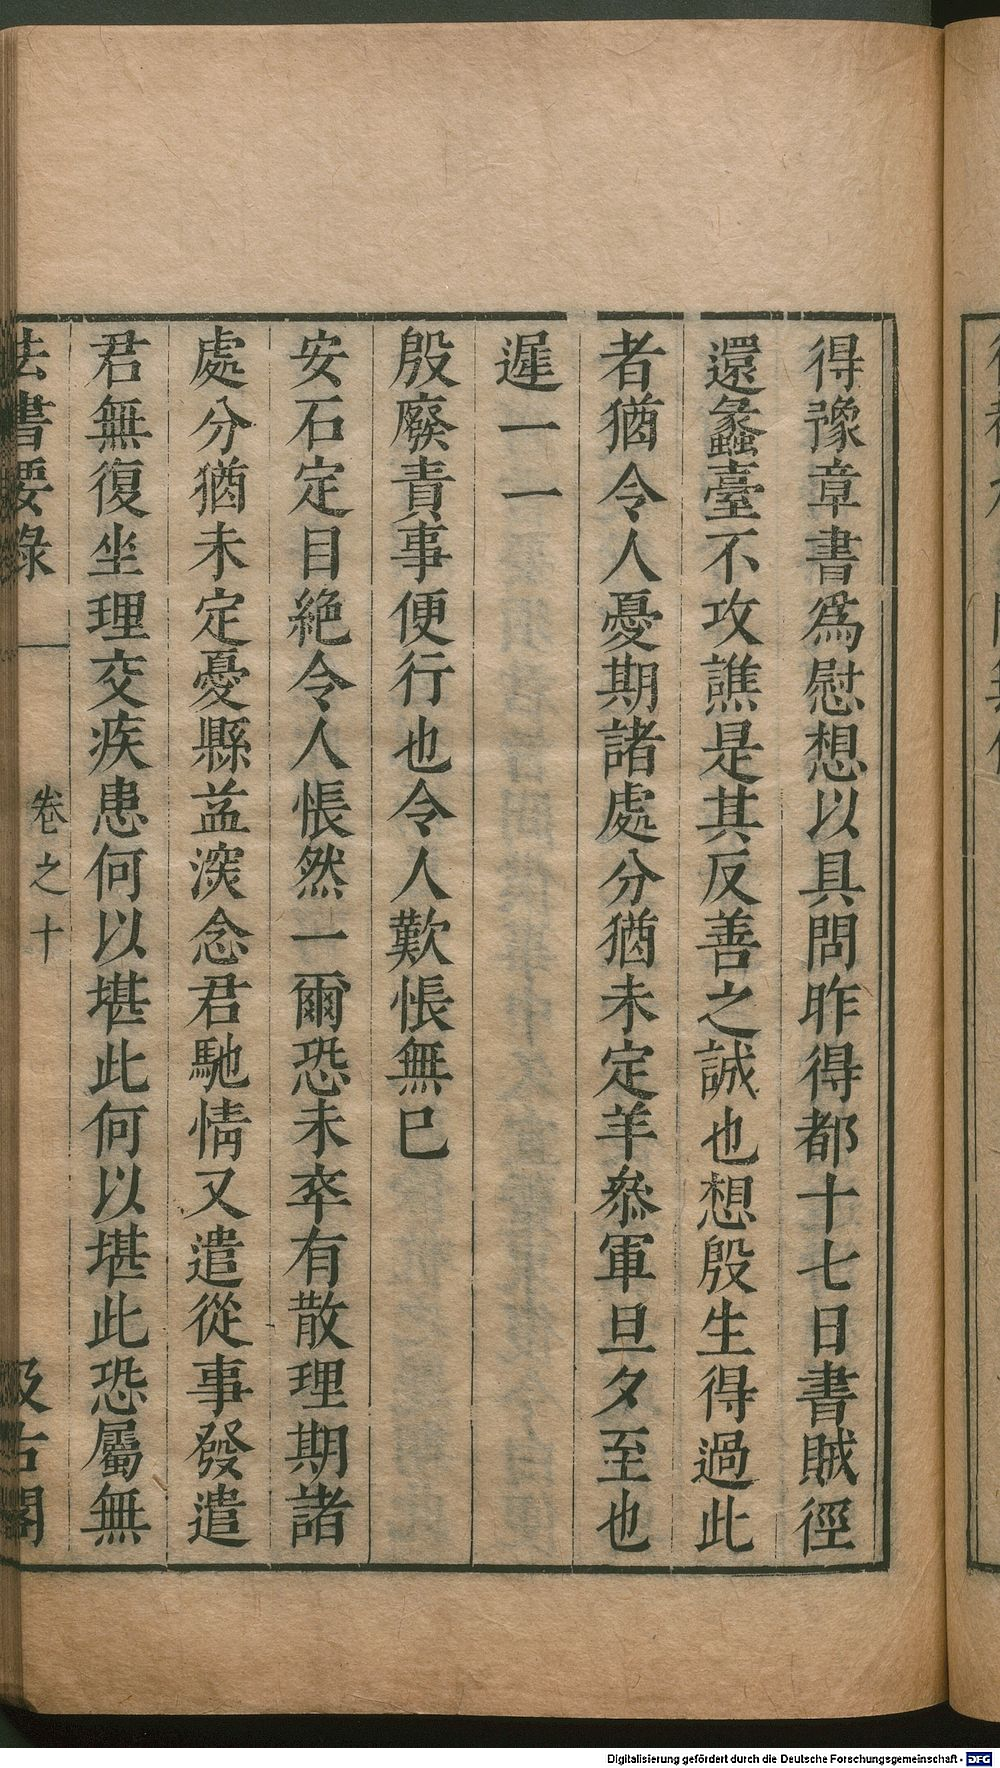 得豫章書爲慰想以具問昨得都十七日書賊徑
還蠡臺不攻譙是其反善之誠也想殷生得過此
者猶令人憂期諸處分猶未定羊叅軍旦夕至也
遲一一
殷廢責事便行也令人歎悵無已
安石定目絶令人悵然一爾恐未卒有散理期諸
處分猶未定憂縣益深念君馳情又遣從事發遣
君無復坐理交疾患何以堪此何以堪此恐屬無
法書要錄 卷之十 汲古閣
Digitalisierung gefördert durch die Deutsche Forschungsgemeinschaft - DFG